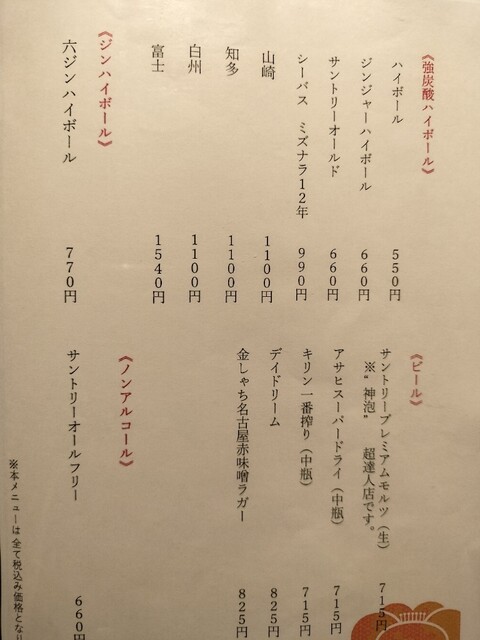 《強炭酸ハイボール》
ハイボール 550円
ジンジャーハイボール 660円
サントリーオールド 660円
シーバス ミズナラ12年 990円
山崎 1100円
知多 1100円
白州 1100円
富士 1540円
《ジンハイボール》
六ジンハイボール 770円
《ビール》
サントリープレミアムモルツ(生) 715円
※“神泡” 超達人店です。
アサヒスーパードライ(中瓶) 715円
キリン一番搾り(中瓶) 715円
デイドリーム 825円
金しゃち名古屋赤味噌ラガー 825円
《ノンアルコール》
サントリーオールフリー 660円
※本メニューは全て税込み価格とな